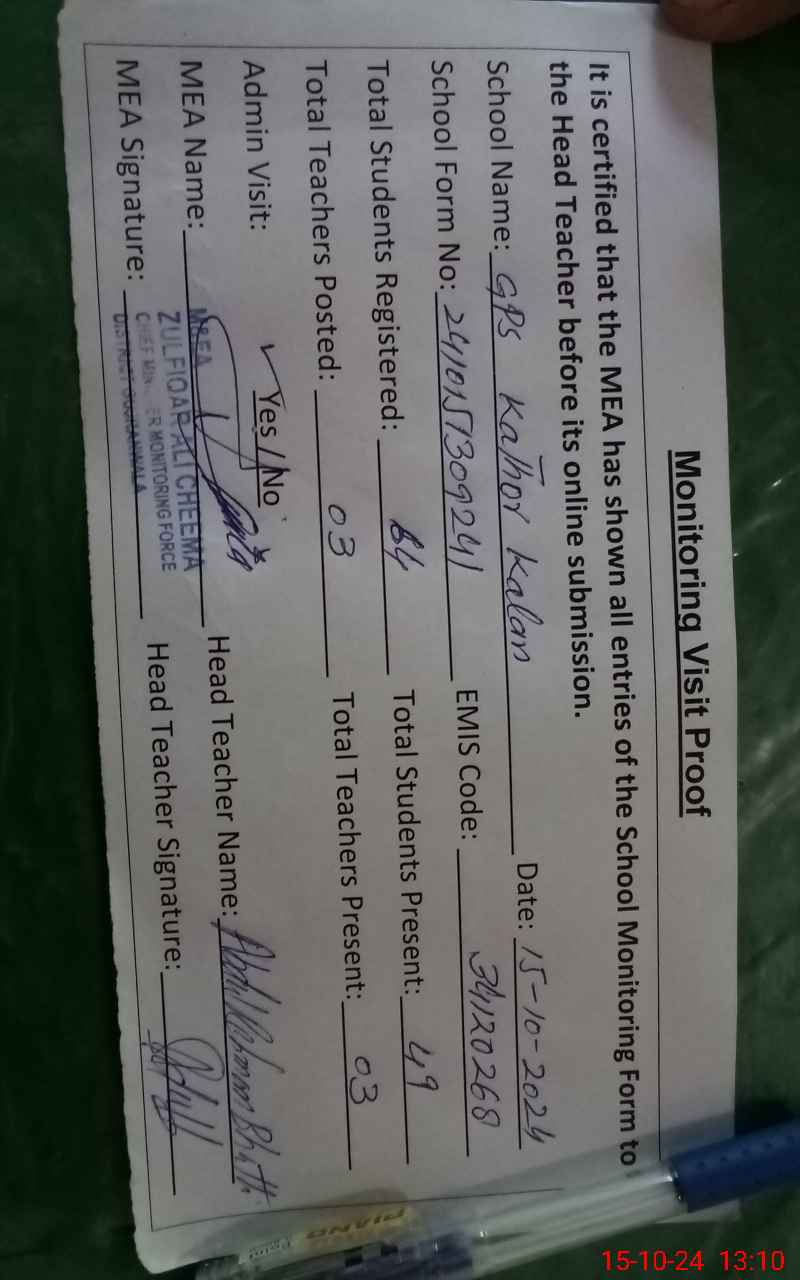 Monitoring Visit Proof
It is certified that the MEA has shown all entries of the School Monitoring Form to
the Head Teacher before its online submission.
School Name: GPS Kathor Kalan Date: 15-10-2024
School Form No: 241015T309241 EMIS Code: 34120268
Total Students Registered: 64 Total Students Present: 49
Total Teachers Posted: 03 Total Teachers Present: 03
Admin Visit: ✓ Yes / No
MEA Name: Head Teacher Name: Abdul Rehman Bhatti
MEA Signature: Head Teacher Signature:
M&EA
ZULFIQAR ALI CHEEMA
CHIEF MINISTER MONITORING FORCE
DISTRICT GUJRANWALA
PIANO
Point
15-10-24 13:10